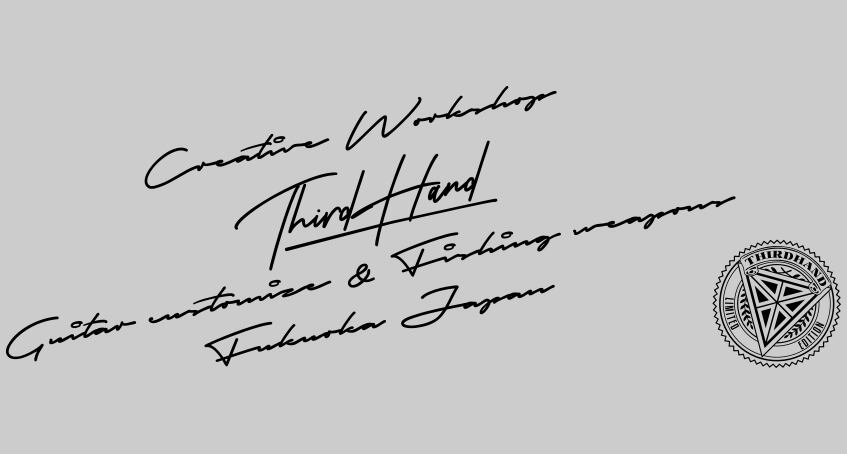 Creative Workshop
Third Hand
Guitar customize & Fishing weapons
Fukuoka Japan
THIRDHAND
LIMITED
EDITION